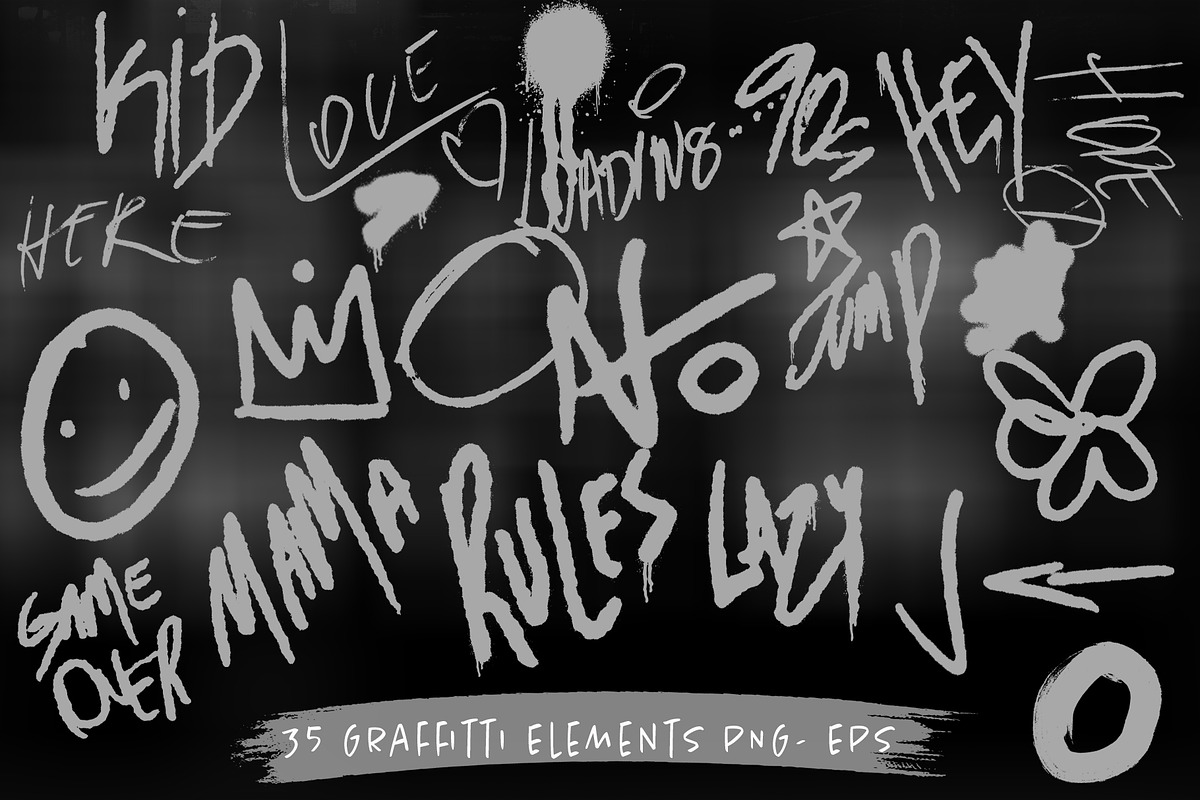 KID
LOVE
LOADING
90s
HEY
HOPE
HERE
JUMP
MAMA
RULES
LAZY
GAME
OVER
35 GRAFFITTI ELEMENTS PNG- EPS